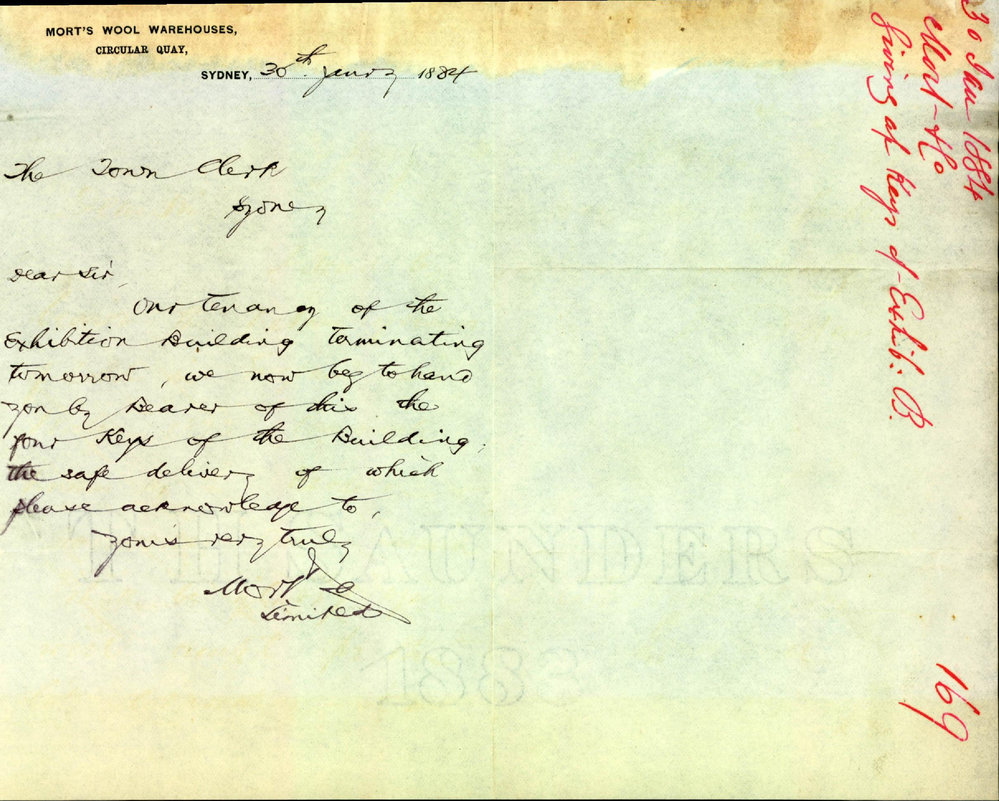 MORT'S WOOL WAREHOUSES,
CIRCULAR QUAY,
SYDNEY, 30th Jany 1884
The Town Clerk
Sydney
Dear Sir,
Our tenancy of the
Exhibition Building terminating
tomorrow, we now beg to hand
you by Bearer of this the
four Keys of the Building,
the safe delivery of which
please acknowledge to,
Yours very truly
Mort & Co
Limited
T H SAUNDERS
1883
30 Jan 1884
Mort & Co
Giving up Keys of Exhib: B.
169